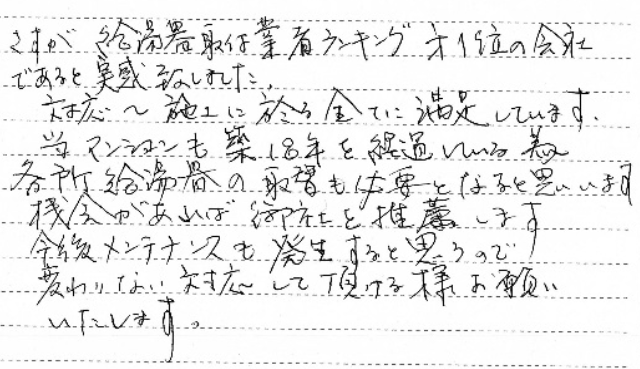 さすが給湯器取付業者ランキング第1位の会社
であると実感致しました。
対応〜施工に於る全てに満足しています。
当マンションも築18年を経過している為
各所給湯器の取替も必要となると思います
機会があれば御社を推薦します
今後メンテナンスも発生すると思うので
変わりない対応して頂ける様お願い
いたします。